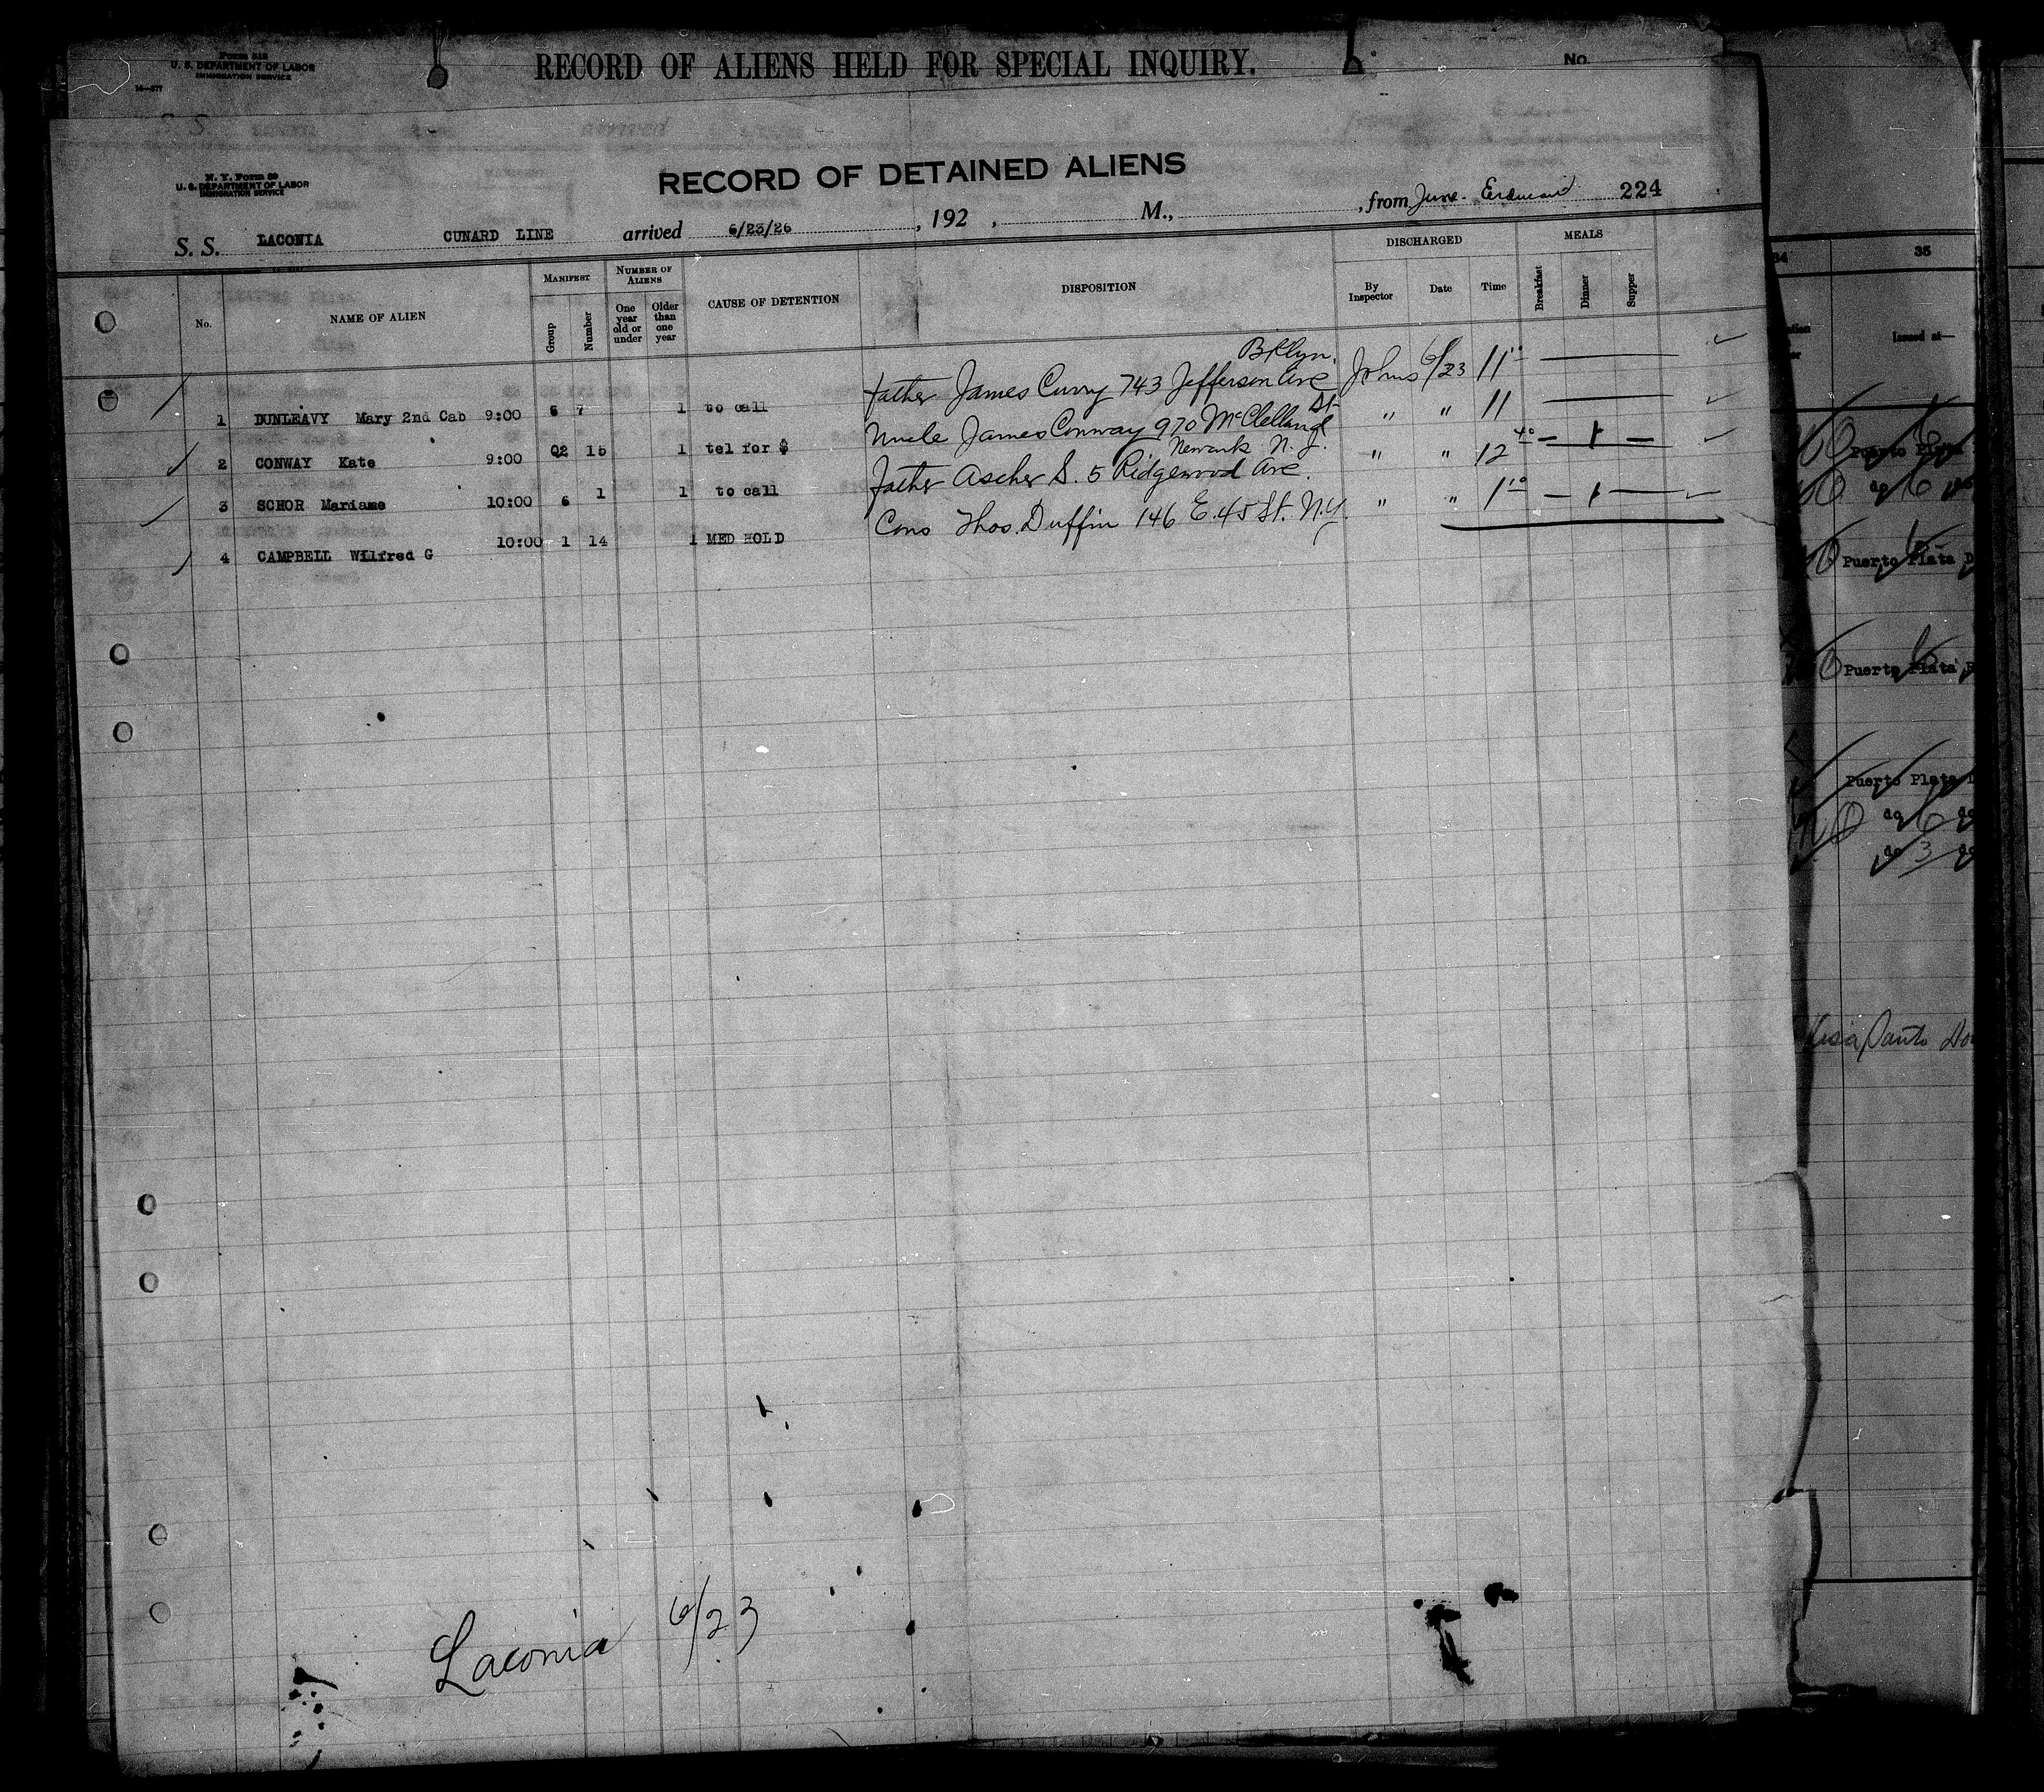 Form 518
U. S. DEPARTMENT OF LABOR
IMMIGRATION SERVICE
14—577
RECORD OF ALIENS HELD FOR SPECIAL INQUIRY.
No.
S. S.
arrived
N. Y. Form 89
U. S. DEPARTMENT OF LABOR
IMMIGRATION SERVICE
RECORD OF DETAINED ALIENS
S. S. LACONIA CUNARD LINE arrived 6/23/26, 192 , M., , from 224
No. NAME OF ALIEN MANIFEST Group Number NUMBER OF ALIENS One year old or under Older than one year CAUSE OF DETENTION DISPOSITION DISCHARGED By Inspector Date Time MEALS Breakfast Dinner Supper
Bklyn.
1 DUNLEAVY Mary 2nd Cab 9:00 6 7 1 to call father James Curry 743 Jefferson Ave Johns 6/23 11 10
St
2 CONWAY Kate 9:00 Q2 15 1 tel for $ Uncle James Conway 970 McClelland " " 11
Newark N. J.
3 SCHOR Mariame 10:00 6 1 1 to call father Ascher S. 5 Ridgewood Ave. " " 12 40 — 1 —
4 CAMPBELL Wilfred G 10:00 1 14 1 MED HOLD Cons Thos. Duffin 146 E. 45 St. N.Y. " " 1 10 — 1 —
Laconia 6/23
34 35
Issued at—
Puerto Plata
do 6 do
Puerto Plata D
Puerto Plata
Puerto Plata
do 6 do
do 3 do
Visa Santo Do